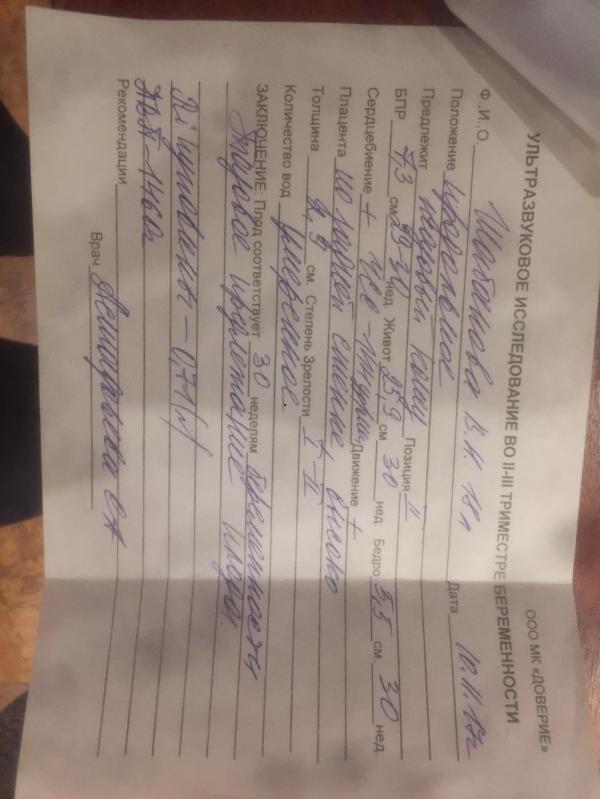 ООО МК «ДОВЕРИЕ»
УЛЬТРАЗВУКОВОЕ ИССЛЕДОВАНИЕ ВО II-III ТРИМЕСТРЕ БЕРЕМЕННОСТИ
Ф.,И.,О. Шабанова В.Н. 18л Дата 10.11.17г
Положение продольное
Предлежит тазовый конец Позиция II
БПР 7,3 см 29-30 нед. Живот 25,9 см 30 нед. Бедро 5,5 см. 30 нед.
Сердцебиение + ЧСС - Движение +
Плацента по задней стенке высоко
Толщина 2,9 см. Степень Зрелости I-II
Количество вод умеренное
ЗАКЛЮЧЕНИЕ: Плод соответствует 30 неделям беременности
Тазовое предлежание плода.
Ri пуповины - 0,71 N
ПВП - 1460г
Рекомендации
Врач